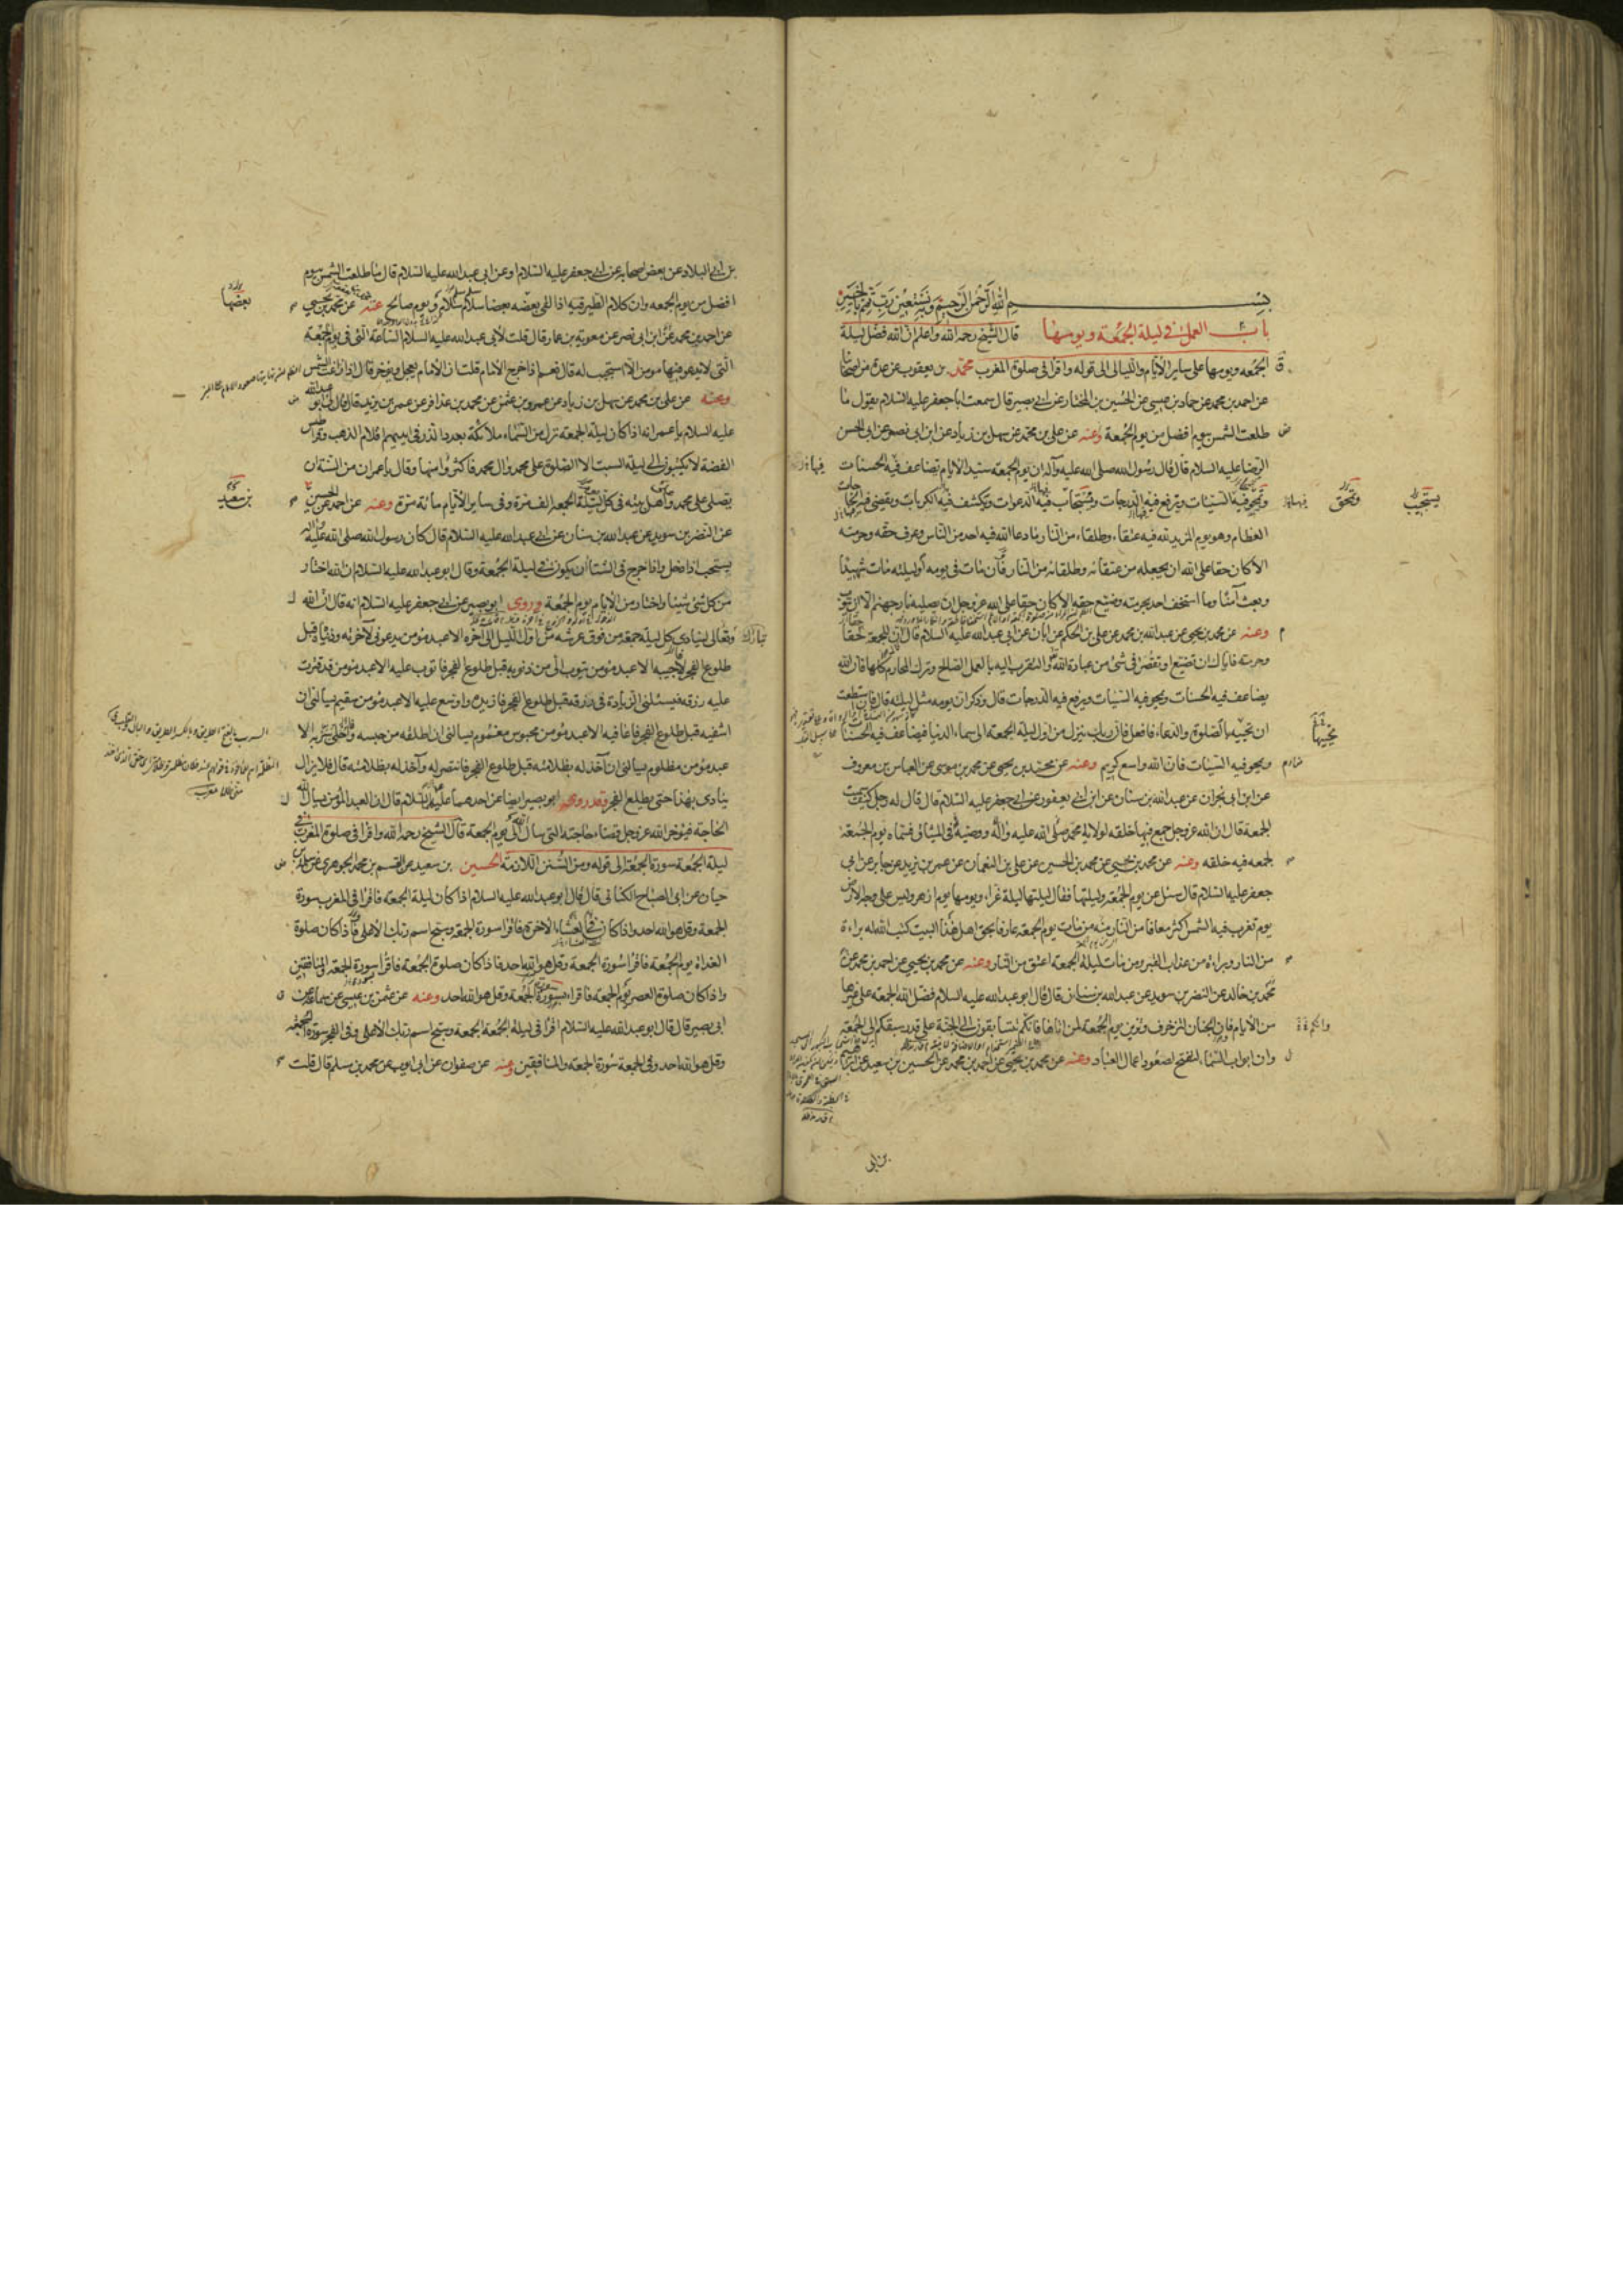 بسم الله الرحمن الرحيم وبه نستعين رب تمم بالخير
باب العمل في ليلة الجمعة ويومها قال الشيخ رحمه الله واعلم ان الله فضل ليلة
الجمعه ويومها على ساير الأيام والليالى الى قوله واقرا فى صلوة المغرب محمد بن يعقوب عن عدة من اصحابنا
عن احمد بن محمد عن حماد بن عيسى عن الحسين بن المختار عن ابي بصير قال سمعت ابا جعفر عليه السلام يقول ما
طلعت الشمس بيوم افضل من يوم الجمعة وعنه عن على بن محمد عن سهل بن زياد عن ابن ابى نصر عن ابى الحسن
الرضا عليه السلام قال قال رسول الله صلى الله عليه وآله ان يوم الجمعه سيد الأيام تضاعف فيه الحسنات
وتمحو فيه السيئات وترفع فيه الدرجات وتستجاب فيه الدعوات وتكشف فيه الكربات وتقضى فيه الحاجات
العظام وهو يوم المزيد لله فيه عتقاء وطلقاء من النار ما دعا الله فيه احد من الناس وعرف حقه وحرمته
الا كان حقا على الله ان يجعله من عتقائه وطلقائه من النار فان مات فى يومه أو ليلته مات شهيدا
وبعث آمنا وما استخف احد بحرمته وضيع حقه الا كان حقا على الله عز وجل ان يصليه نار جهنم الا ان يتوب
وعنه عن محمد بن يحيى عن عبد الله بن محمد عن على بن الحكم عن ابان عن ابى عبد الله عليه السلام قال ان للجمعة حقا
وحرمته فاياك ان تضيع او تقصر فى شئ من عبادة الله والتقرب اليه بالعمل الصالح وترك المحارم كلها فان الله
يضاعف فيه الحسنات ويمحو فيه السيئات ويرفع فيه الدرجات قال وذكر ان يومه مثل ليلته قال فان استطعت
ان تحييه بالصلوة والدعاء فافعل فان ربك ينزل من اول ليلة الجمعه الى سماء الدنيا فيضاعف فيه الحسنات
ويمحو فيه السيئات فان الله واسع كريم وعنه عن محمد بن يحيى عن محمد بن موسى عن العباس بن معروف
عن ابن ابى نجران عن عبد الله بن سنان عن ابن ابي يعفور عن ابي جعفر عليه السلام قال قال له رجل كيف سميت
الجمعة قال ان الله عز وجل جمع فيها خلقه لولاية محمد صلى الله عليه وآله ووصيه فى الميثاق فسماه يوم الجمعة
لجمعه فيه خلقه وعنه عن محمد بن يحيى عن محمد بن الحسين عن على بن النعمان عن عمر بن يزيد عن جابر عن ابى
جعفر عليه السلام قال سئل عن يوم الجمعه وليلتها فقال ليلتها ليلة غراء ويومها يوم ازهر وليس على وجه الارض
يوم تغرب فيه الشمس اكثر معافا من النار منه من مات يوم الجمعه عارفا بحق اهل هذا البيت كتب الله له براءة
من النار وبراءة من عذاب القبر ومن مات ليلة الجمعه اعتق من النار وعنه عن محمد بن يحيى عن احمد بن محمد عن
محمد بن خالد عن النضر بن سويد عن عبد الله بن سنان قال قال ابو عبد الله عليه السلام فضل الله الجمعه على غيرها
من الأيام فان الجنان لتزخرف وتزين يوم الجمعة لمن اتاها فانكم تتسابقون الى الجنة على قدر سبقكم الى الجمعة
وان ابواب السماء لتفتح لصعود اعمال العباد وعنه عن محمد بن يحيى عن احمد بن محمد عن الحسين بن سعيد عن ابراهيم
بن ابى
فيها
يستجيب
وتمحق
فيها
تحييها
بن ابي البلاد عن بعض اصحابه عن ابي جعفر عليه السلام او عن ابى عبد الله عليه السلام قال ما طلعت الشمس بيوم
افضل من يوم الجمعه وان كلام الطير فيه اذا لقى بعضه بعضا سلام سلام ويوم صالح عنه عن محمد بن يحيى
عن احمد بن محمد عن ابن ابى نصر عن معوية بن عمار قال قلت لأبى عبد الله عليه السلام الساعة التى فى يوم الجمعة
التى لا يدعو فيها مومن الا استجيب له قال نعم اذا خرج الأمام قلت ان الأمام يعجل ويؤخر قال اذا زاغت الشمس
وعنه عن على بن محمد عن سهل بن زياد عن عمرو بن عثمن عن محمد بن عذافر عن عمر بن يزيد قال قال لى ابو عبد الله
عليه السلام يا عمر انه اذا كان ليلة الجمعه نزل من السماء ملائكة بعدد الذر فى ايديهم اقلام الذهب وقراطيس
الفضة لا يكتبون الى ليلة السبت الا الصلوة على محمد وال محمد فاكثروا منها وقال يا عمر ان من السنة ان
يصلى على محمد واهل بيته فى كل ليلة الجمعه الف مرة وفى ساير الأيام مائه مرة وعنه عن احمد عن الحسين
عن النضر بن سويد عن عبد الله بن سنان عن ابي عبد الله عليه السلام قال كان رسول الله صلى الله عليه واله
يستحب اذا دخل واذا خرج فى الشتا ان يكون فى ليلة الجمعة وقال ابو عبد الله عليه السلام ان الله اختار
من كل شئ شيئا واختار من الأيام يوم الجمعة وروى ابو بصير عن ابي جعفر عليه السلام انه قال ان الله
تبارك وتعالى لينادى كل ليلة جمعة من فوق عرشه من اول الليل الى آخره الا عبد مؤمن يدعونى لآخرته ودنياه قبل
طلوع الفجر لأجيبه الا عبد مؤمن يتوب الى من ذنوبه قبل طلوع الفجر فاتوب عليه الا عبد مؤمن قد قترت
عليه رزقه فيسئلنى الزيادة فى رزقه قبل طلوع الفجر فازيده واوسع عليه الا عبد مؤمن سقيم يسالنى ان
اشفيه قبل طلوع الفجر فاعافيه الا عبد مؤمن محبوس مغموم يسالنى ان اطلقه من حبسه واخلى سربه الا
عبد مؤمن مظلوم يسالنى ان آخذ له بظلامته قبل طلوع الفجر فانتصر له وآخذ له بظلامته قال فلا يزال
ينادى بهذا حتى يطلع الفجر وقد روى ابو بصير ايضا عن احدهما عليهما السلام قال ان العبد المؤمن يسال الله
الحاجة فيؤخر الله عز وجل قضاء حاجته التى سال الى يوم الجمعة قال الشيخ رحمه الله واقرا فى صلوة المغرب
ليلة الجمعه سورة الجمعة الى قوله ومن السنن اللازمة الحسين بن سعيد عن القسم بن محمد الجوهرى عن سلمة بن
حيان عن ابى الصباح الكنانى قال قال ابو عبد الله عليه السلام اذا كان ليلة الجمعه فاقرا فى المغرب سورة
الجمعة وقل هو الله احد واذا كان فى العشاء الاخرة فاقرا سورة الجمعه وسبح اسم ربك الأعلى فاذا كان صلوة
الغداة يوم الجمعة فاقرا سورة الجمعة وقل هو الله احد فاذا كان صلوة الجمعة فاقرا سورة الجمعة والمنافقين
واذا كان صلوة العصر يوم الجمعه فاقراء بسورة الجمعة وقل هو الله احد وعنه عن عثمن بن عيسى عن سماعه عن
ابى بصير قال قال ابو عبد الله عليه السلام اقرا فى ليلة الجمعة الجمعه وسبح اسم ربك الأعلى وفى الفجر سورة الجمعه
وقل هو الله احد وفى الجمعة سورة الجمعه والمنافقين وعنه عن صفوان عن ابى ايوب عن محمد بن مسلم قال قلت
بعضها
بن سعيد